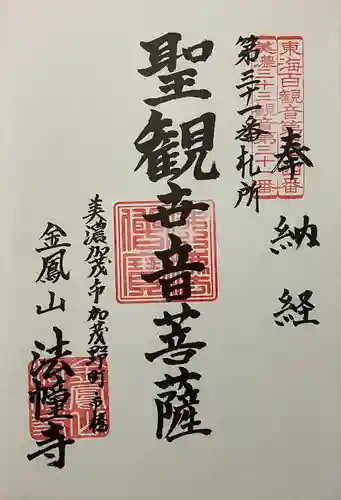 奉納経
東海百観音
美濃三十三観音第三十一番
第三十一番札所
聖観世音菩薩
美濃加茂市加茂野町市橋
金鳳山法幢寺